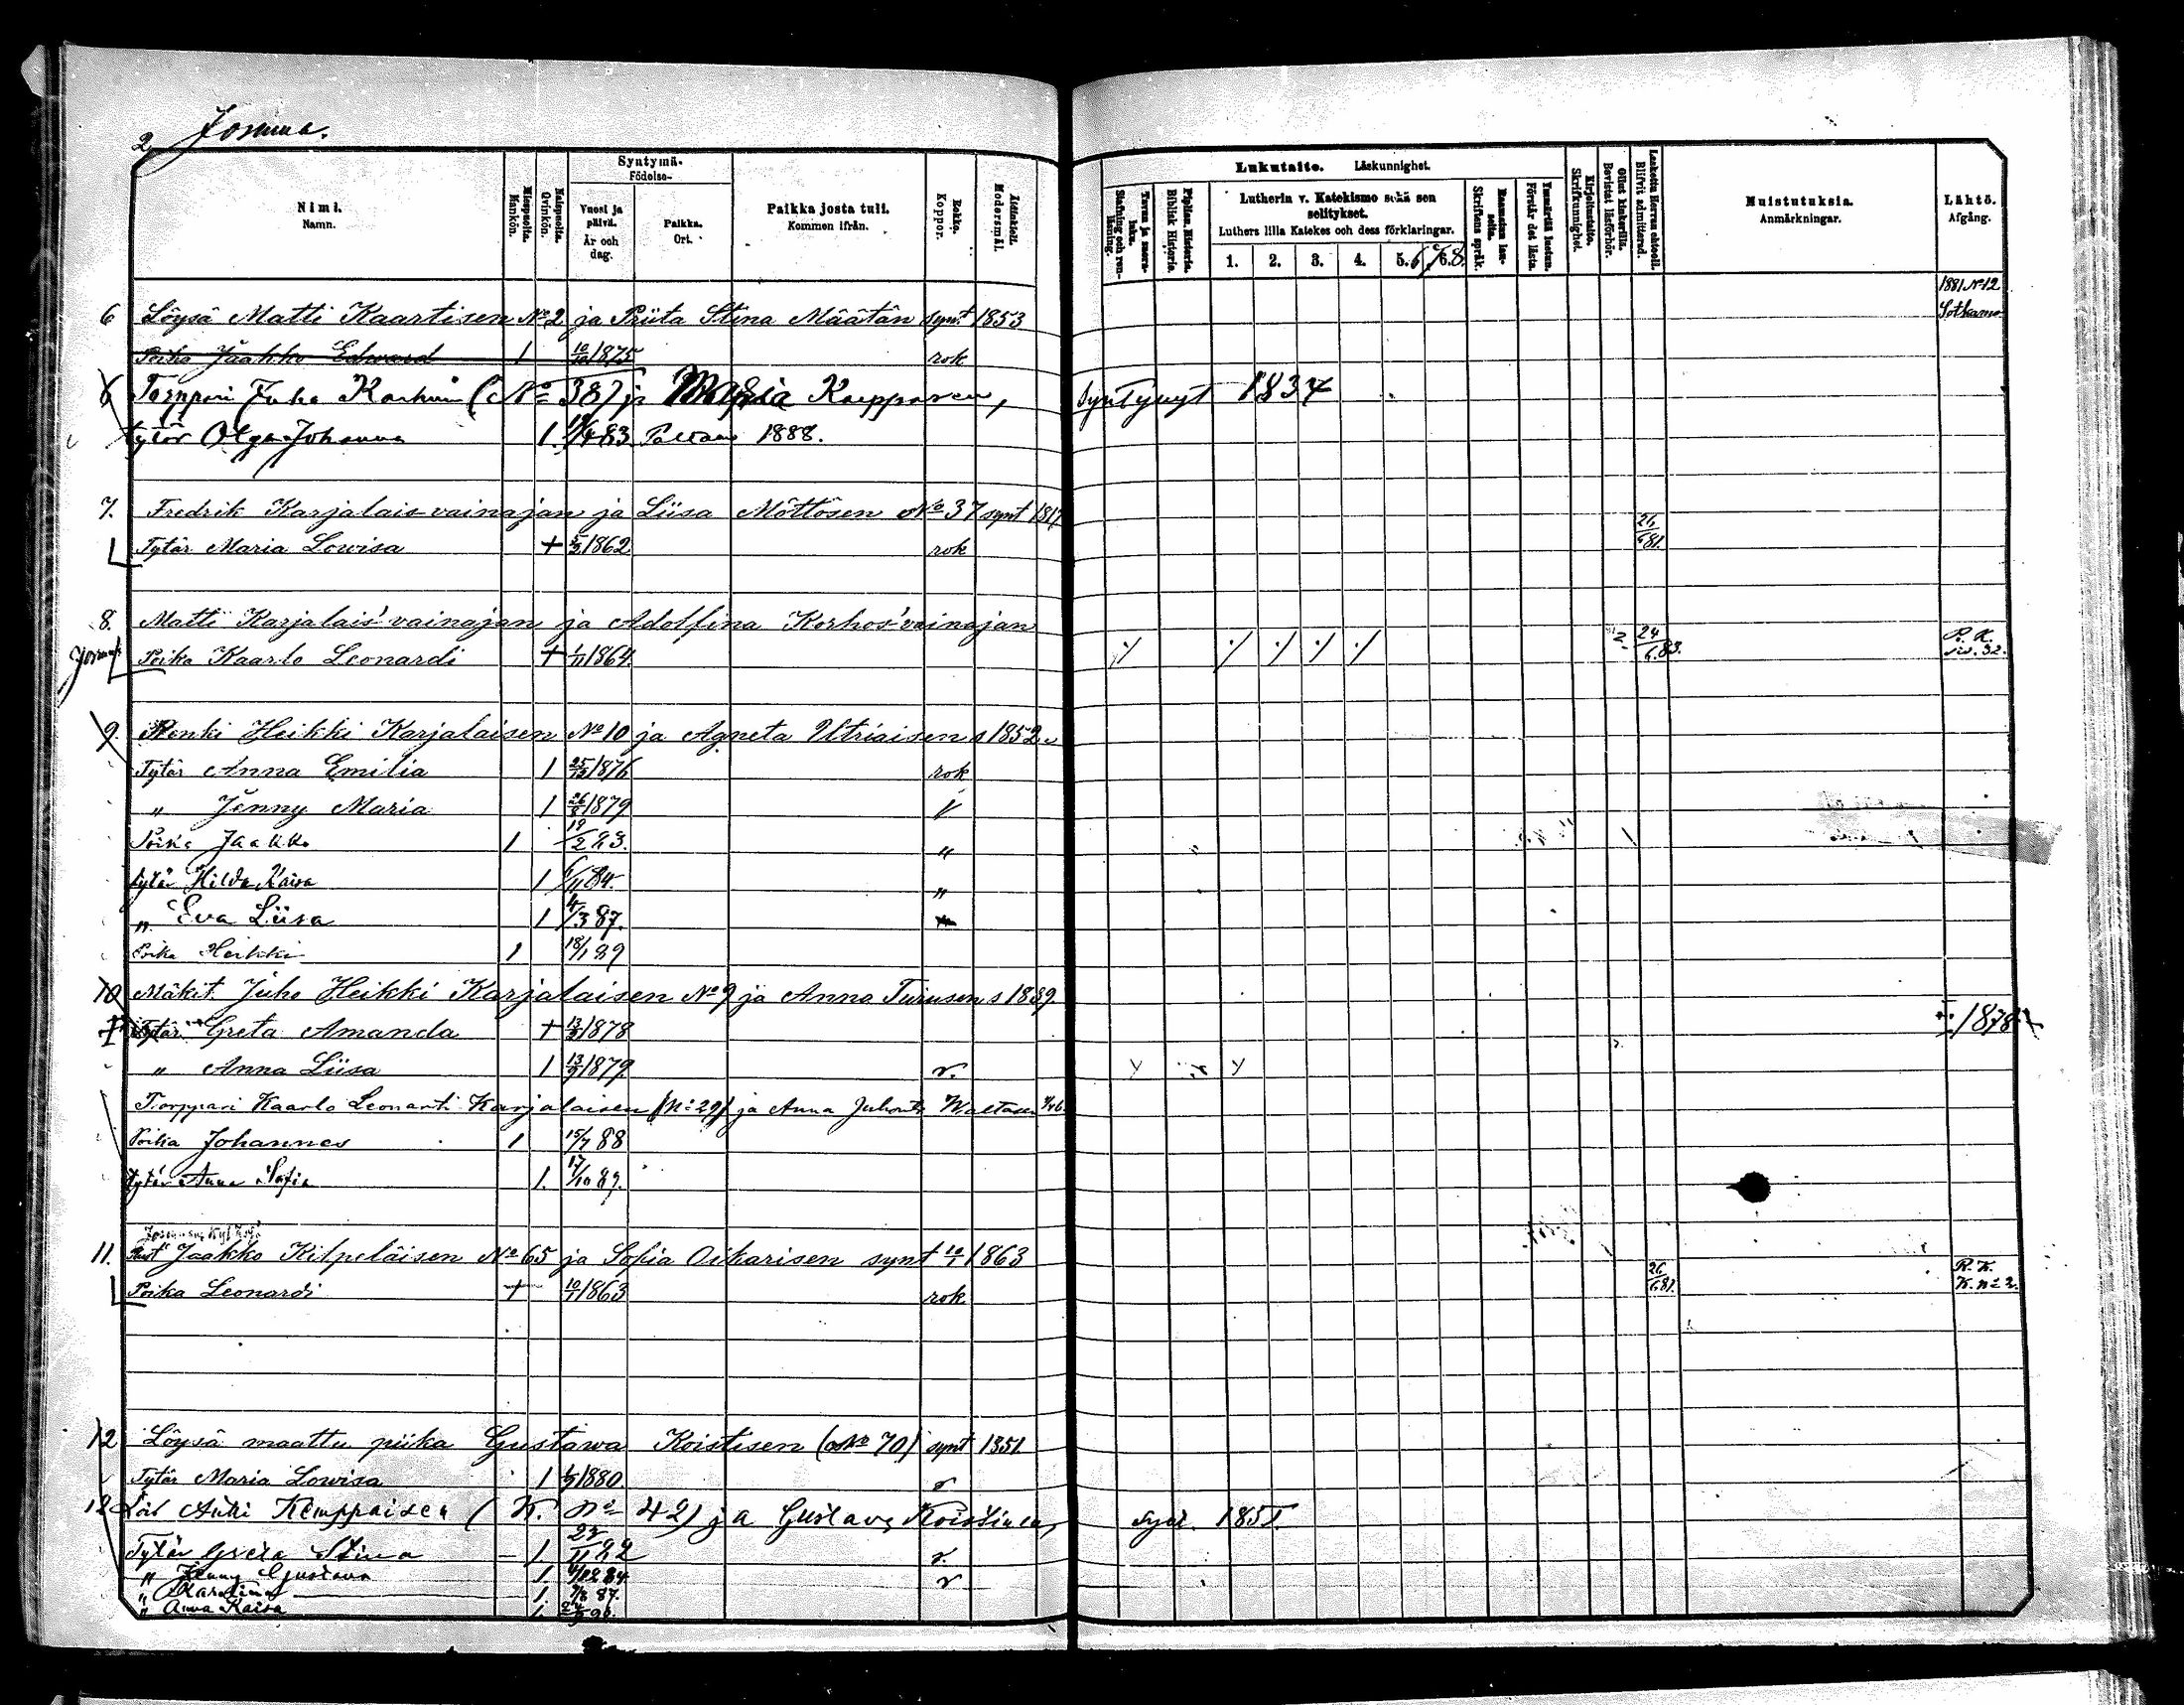 2. Jormua.
Nimi. Namn.
Miespuolia. Mankön.
Naispuolia. Qvinkön.
Syntymä- Födelse-
Vuosi ja päivä. År och dag.
Paikka. Ort.
Paikka josta tuli. Kommen ifrån.
Rokko. Koppor.
Äitinkieli. Modersmål.
Lukutaito. Läskunnighet.
Tavau ja suora- luku. Stafning och ren- läsning.
Piplian Historia. Biblisk Historia.
Lutherin v. Katekismo sekä sen selitykset.
Luthers lilla Katekes och dess förklaringar.
1. 2. 3. 4. 5. 6. 7. 8.
Raamatun lau- seita. Skriftens språk.
Ymmärtää luetun. Förstår det lästa.
Kirjoitustaito. Skrifkunnighet.
Ollut kinkerillä. Bevistat läsförhör.
Laskettu Herran ehtooll. Blifvit admitterad.
Muistutuksia. Anmärkningar.
Lähtö. Afgång.
6 Löysä Matti Kaartisen No 2 ja Priita Stina Määtän synt 1853 1881 No 12 Sotkamo
Poika Jaakko Edward 1 10/10 1875 rok
6 Torppari Juho Karhun (No 387 ja Maria Kemppasen, syntynyt 1834
tytär Olga Johanna 1. 4 83 Paltamo 1888.
7. Fredrik Karjalais vainajan ja Liisa Möttösen No 37 synt 1817
Tytär Maria Lowisa + 5/3 1862 rok 26/6 81.
8. Matti Karjalais' vainajan ja Adolfina Korhos' vainajan
Poika Kaarlo Leonardi + 1/11 1864 24/6.83. R. K. siv. 32.
9. Renki Heikki Karjalaisen No 10 ja Agneta Utriaisen s 1852
Tytär Anna Emilia 1 25/12 1876 rok
" Jenny Maria 1 26/8 1879 "
Poika Jaakko 1 19/2 83. "
tytär Hilda Kaisa 1 /11 84. "
" Eva Liisa 1 4/3 87.
Poika Heikki 1 18/1 89
10 Mäkit. Juho Heikki Karjalaisen No 9 ja Anna Turusen s 1839.
Tytär Greta Amanda + 13/3 1878 1878 +
" Anna Liisa 1 13/9 1879 r.
Torppari Kaarlo Leonarti Karjalaisen (No 29) ja Anna Juhont. Waltasen
Poika Johannes 1 15/7 88
tytär Anna Sofia 1. 17/10 89.
11. Jaakko Kilpeläisen No 65 ja Sofia Oikarisen synt 10/1 1863
Poika Leonardi + 10/1 1863 rok 26/6 81. R. K. K. n= 2.
12 Löysä maattu piika Gustawa Koistisen (No 70) synt 1851
Tytär Maria Lowisa 1 1/9 1880. r
12 Lois Antti Kemppaisen (K. No 42) ja Gustava Koistinen, synt. 1851.
Tytär Greta Stina 1. 23/11 82 r.
" Jenny Gustava 1. 84 r
" Karolina 1. 7/8 87.
" Anna Kaisa 1. 90.